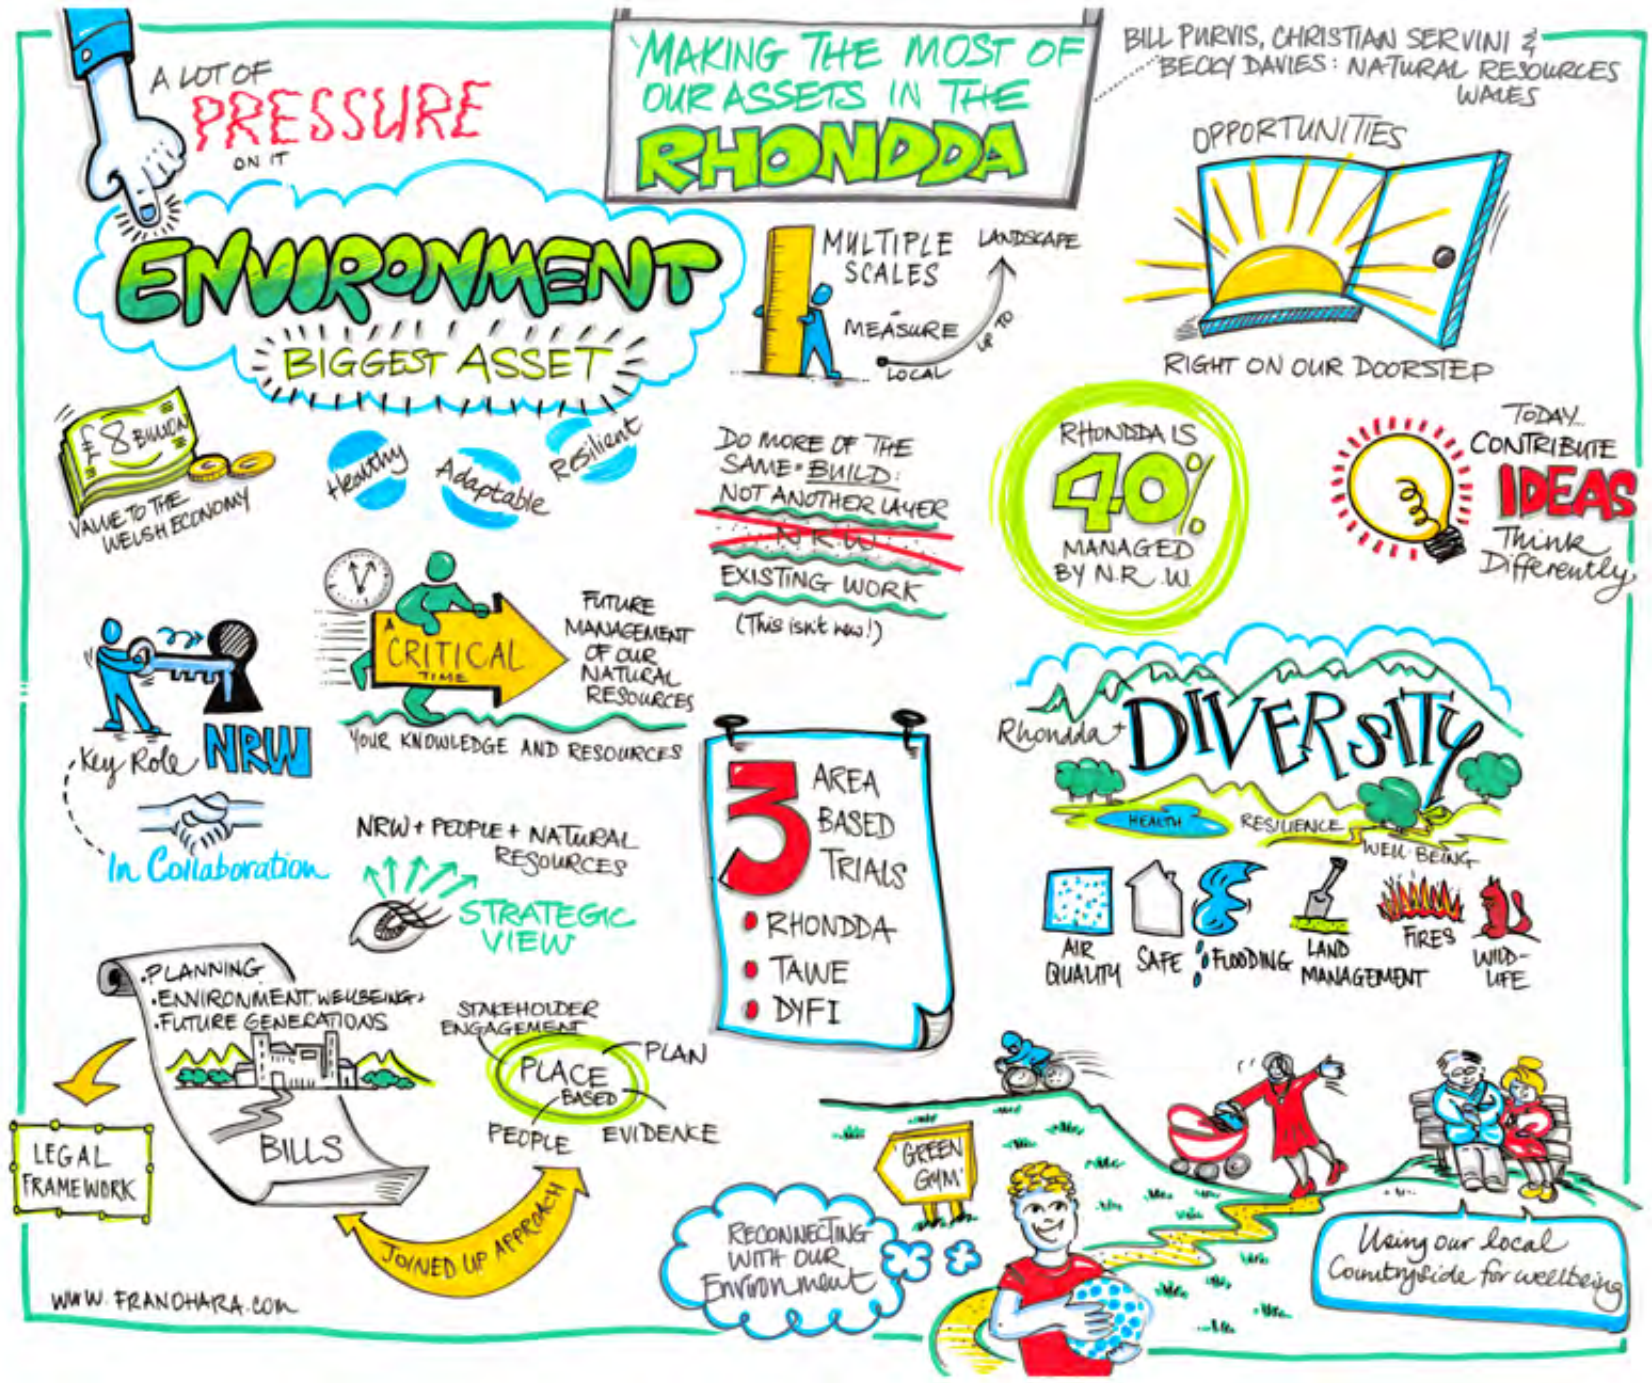 A LOT OF
PRESSURE
ON IT
'MAKING THE MOST OF
OUR ASSETS IN THE
RHONDDA
BILL PURVIS, CHRISTIAN SERVINI &
BECKY DAVIES: NATURAL RESOURCES
WALES
ENVIRONMENT
BIGGEST ASSET
MULTIPLE
SCALES
LANDSCAPE
MEASURE
UP TO
LOCAL
OPPORTUNITIES
RIGHT ON OUR DOORSTEP
£8 BILLION
VALUE TO THE
WELSH ECONOMY
Healthy
Adaptable
Resilient
DO MORE OF THE
SAME • BUILD:
NOT ANOTHER LAYER
N R W
EXISTING WORK
(This isn't new!)
RHONDDA IS
40%
MANAGED
BY N.R.W.
TODAY...
CONTRIBUTE
IDEAS
Think
Differently
A
CRITICAL
TIME
FUTURE
MANAGEMENT
OF OUR
NATURAL
RESOURCES
YOUR KNOWLEDGE AND RESOURCES
Key Role NRW
In Collaboration
NRW + PEOPLE + NATURAL
RESOURCES
STRATEGIC
VIEW
3 AREA
BASED
TRIALS
• RHONDDA
• TAWE
• DYFI
Rhondda +
DIVERSITY
HEALTH
RESILIENCE
WELL-BEING
AIR
QUALITY
SAFE
FLOODING
LAND
MANAGEMENT
FIRES
WILD-
LIFE
• PLANNING
• ENVIRONMENT, WELLBEING +
• FUTURE GENERATIONS
BILLS
LEGAL
FRAMEWORK
STAKEHOLDER
ENGAGEMENT
PLAN
PLACE
BASED
PEOPLE
EVIDENCE
JOINED UP APPROACH
'GREEN
GYM'
RECONNECTING
WITH OUR
Environment
Using our local
Countryside for wellbeing
WWW.FRANOHARA.COM